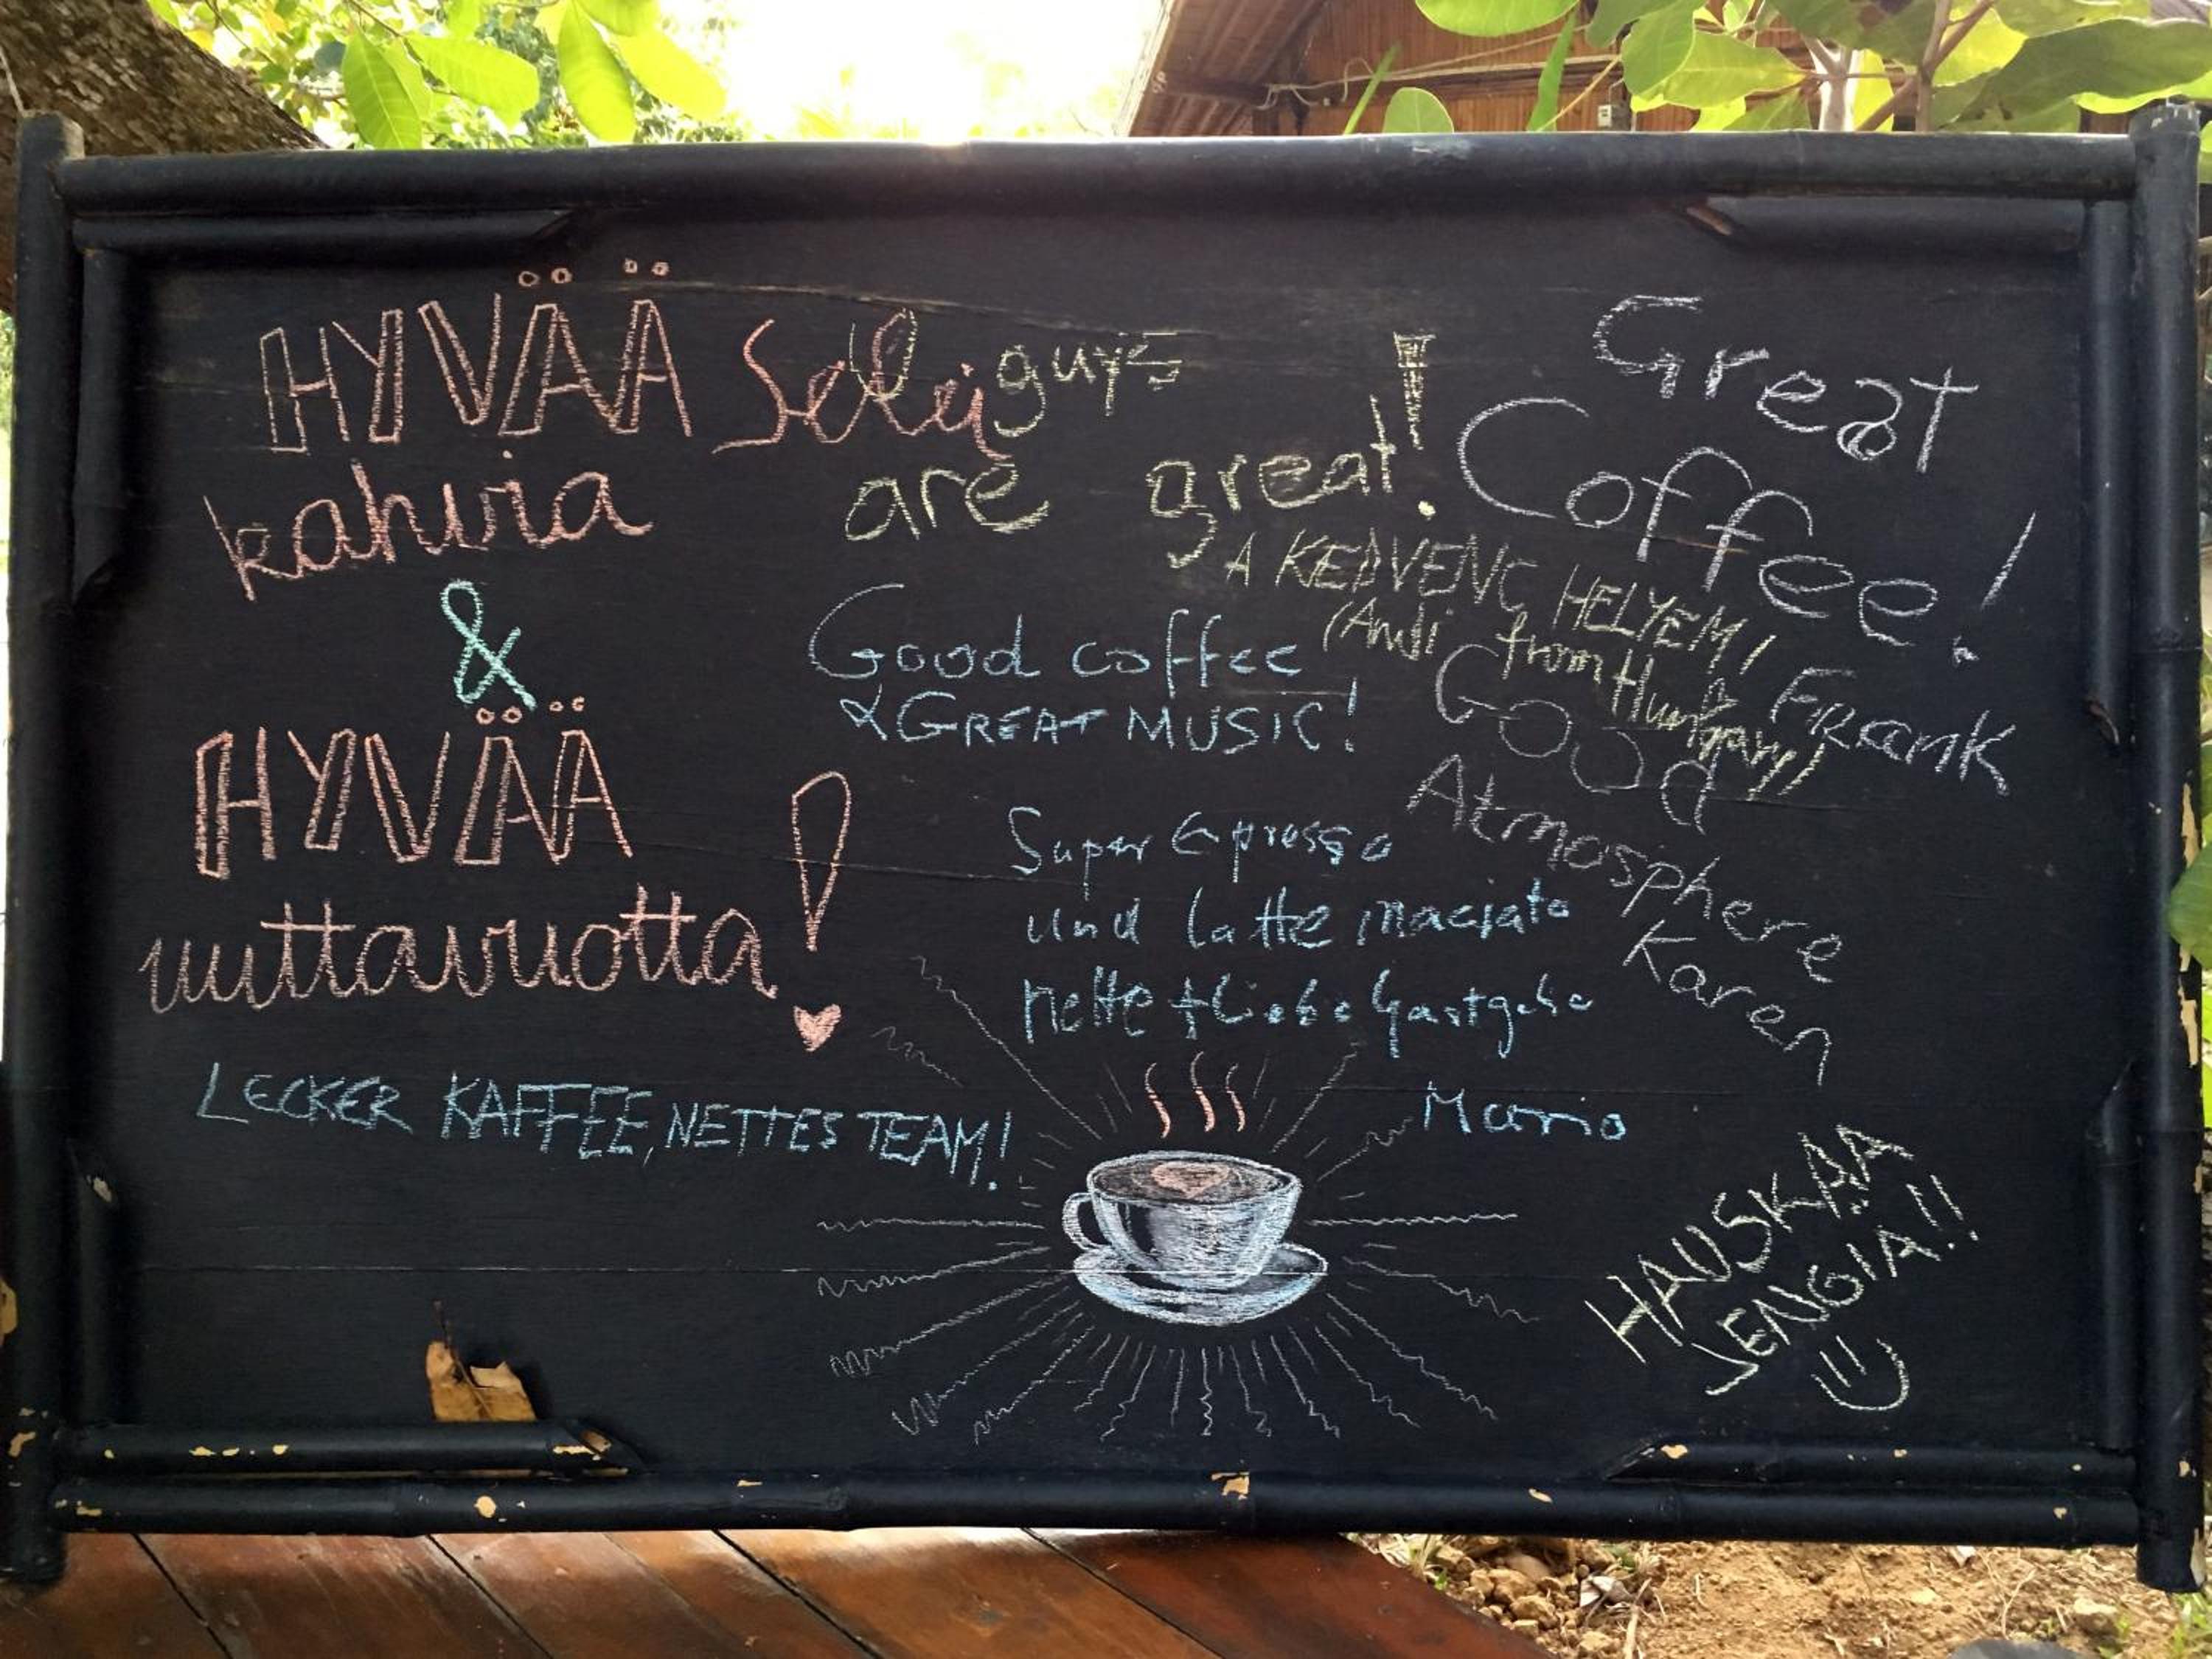 HYVÄÄ
kahvia
&
HYVÄÄ
uuttavuotta!
LECKER KAFFEE, NETTES TEAM!
guys
are great!
Good coffee
& GREAT MUSIC!
Super Epresso
und latte maciato
nette + liebe Gastgebe
Mario
Great
Coffee!
FRANK
A KEDVENC HELYEM!
(Andi from Hungary)
Good
Atmosphere
Karen
HAUSKAA
JENGIA!!